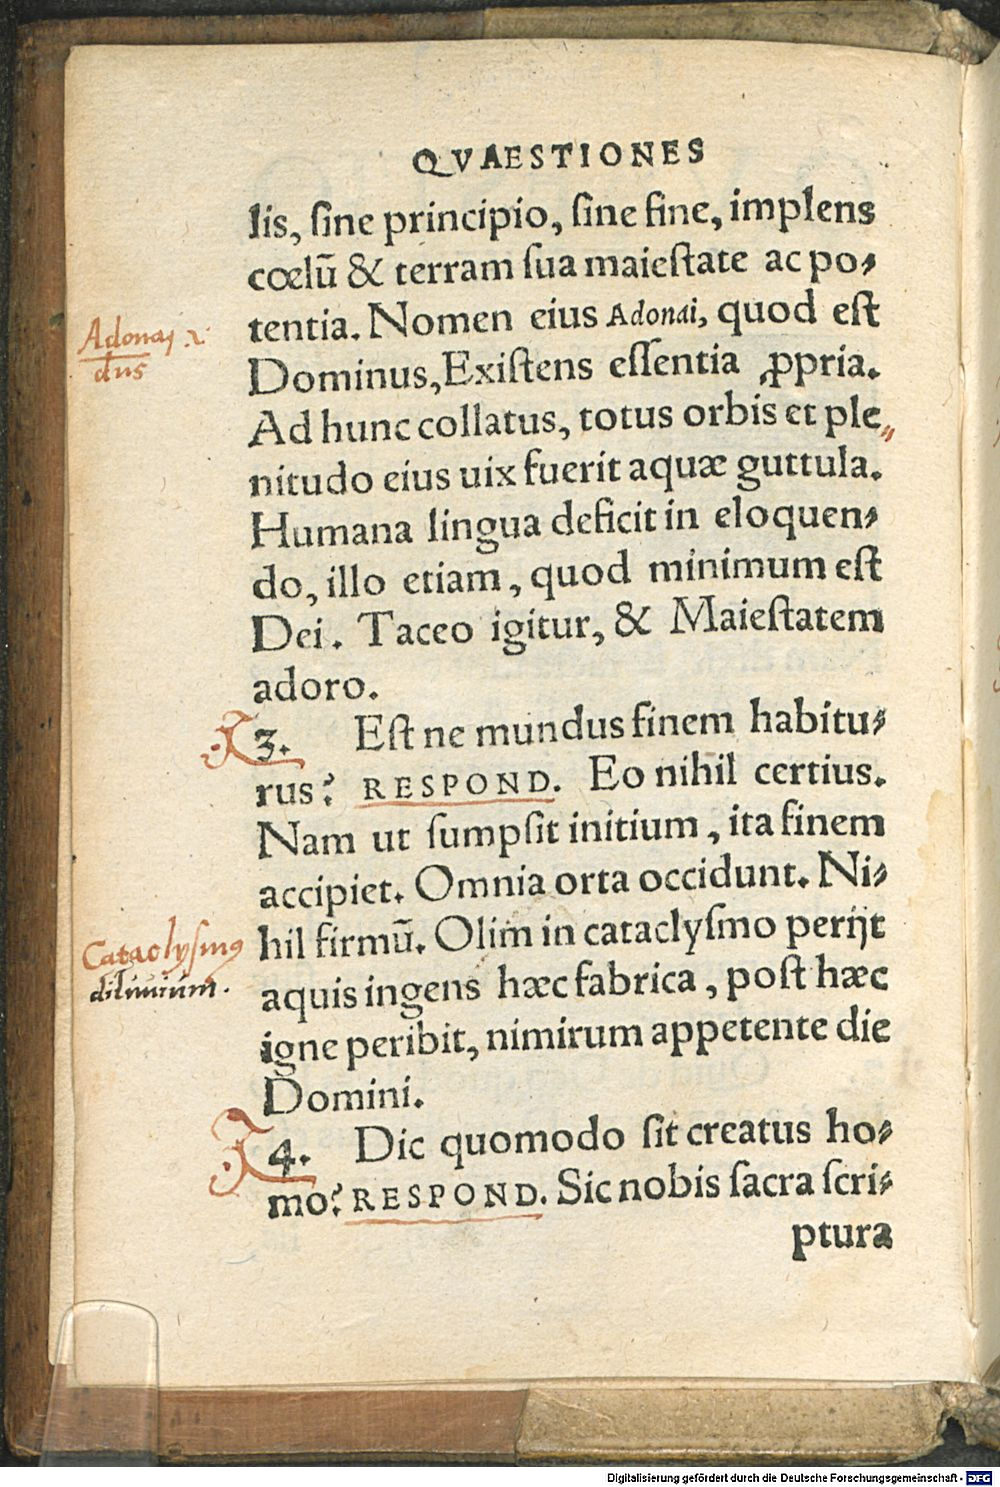 QVAESTIONES
lis, ſine principio, ſine fine, implens
cœlū & terram ſua maieſtate ac po-
tentia. Nomen eius Adonai, quod eſt
Dominus, Exiſtens eſſentia ꝓpria.
Ad hunc collatus, totus orbis et ple„
nitudo eius uix fuerit aquæ guttula.
Humana lingua deficit in eloquen-
do, illo etiam, quod minimum eſt
Dei. Taceo igitur, & Maieſtatem
adoro.
3. Eſt ne mundus finem habitu-
rus? RESPOND. Eo nihil certius.
Nam ut ſumpſit initium, ita finem
accipiet. Omnia orta occidunt. Ni-
hil firmū. Olim in cataclyſmo perijt
aquis ingens hæc fabrica, poſt hæc
igne peribit, nimirum appetente die
Domini.
4. Dic quomodo ſit creatus ho-
mo? RESPOND. Sic nobis ſacra ſcri-
ptura
Adonaj
dns
Cataclyſmus
diluuium.
Digitalisierung gefördert durch die Deutsche Forschungsgemeinschaft - DFG